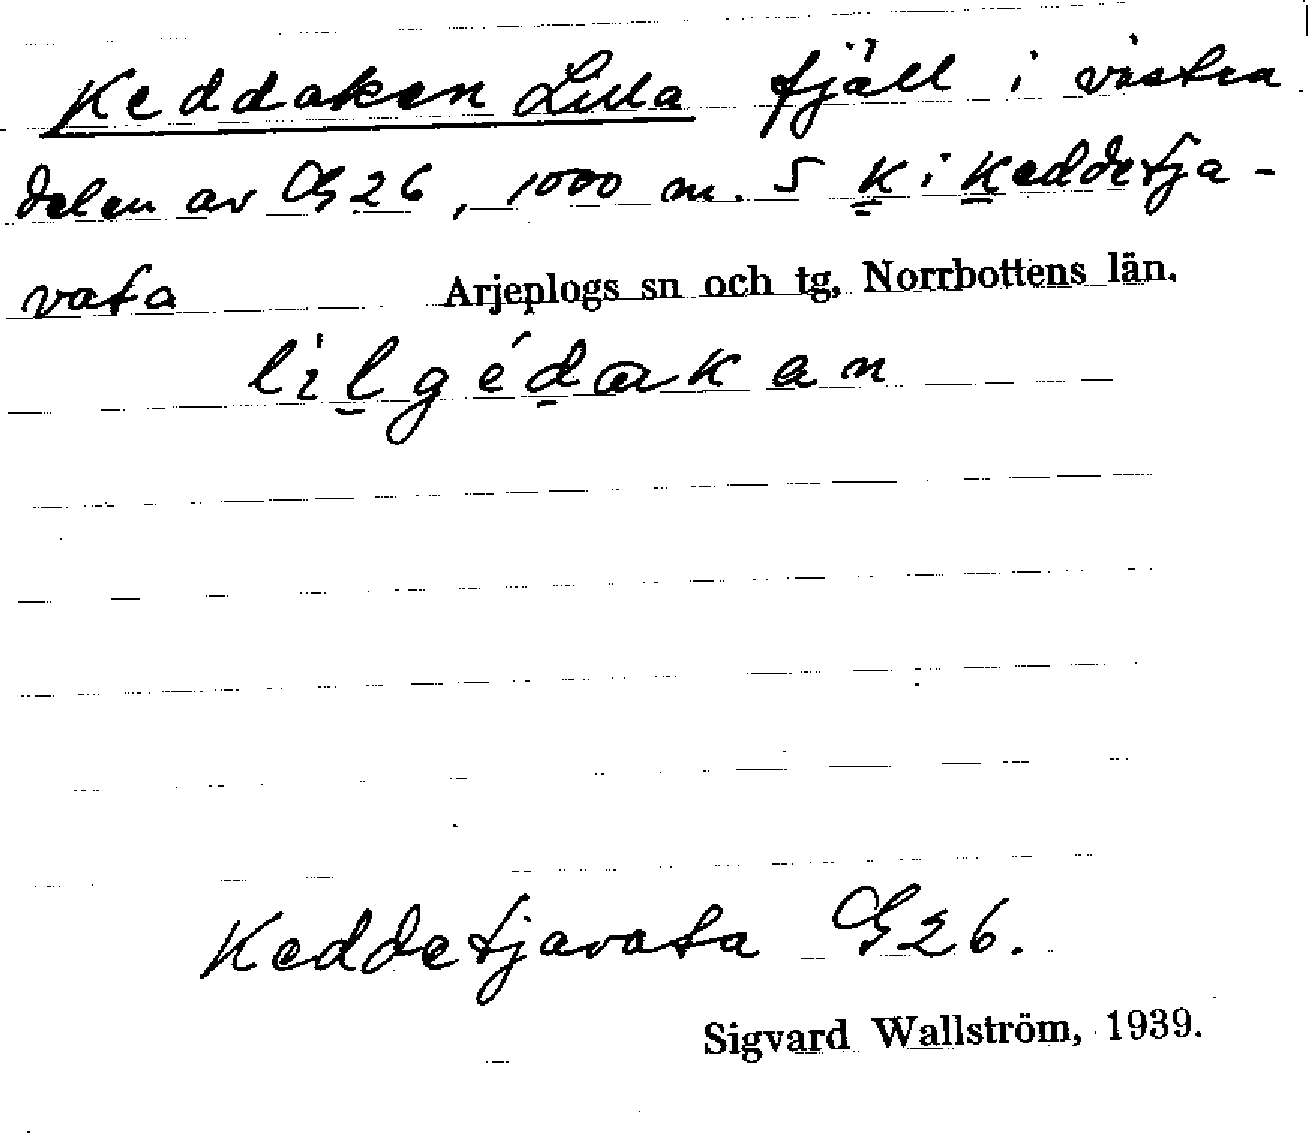 Keddaken Lilla fjäll i västra
delen av G 26, 1000 m. S K i Keddetja-
vata Arjeplogs sn och tg, Norrbottens län.
lilgédakan
Keddetjavata G 26.
Sigvard Wallström, 1939.